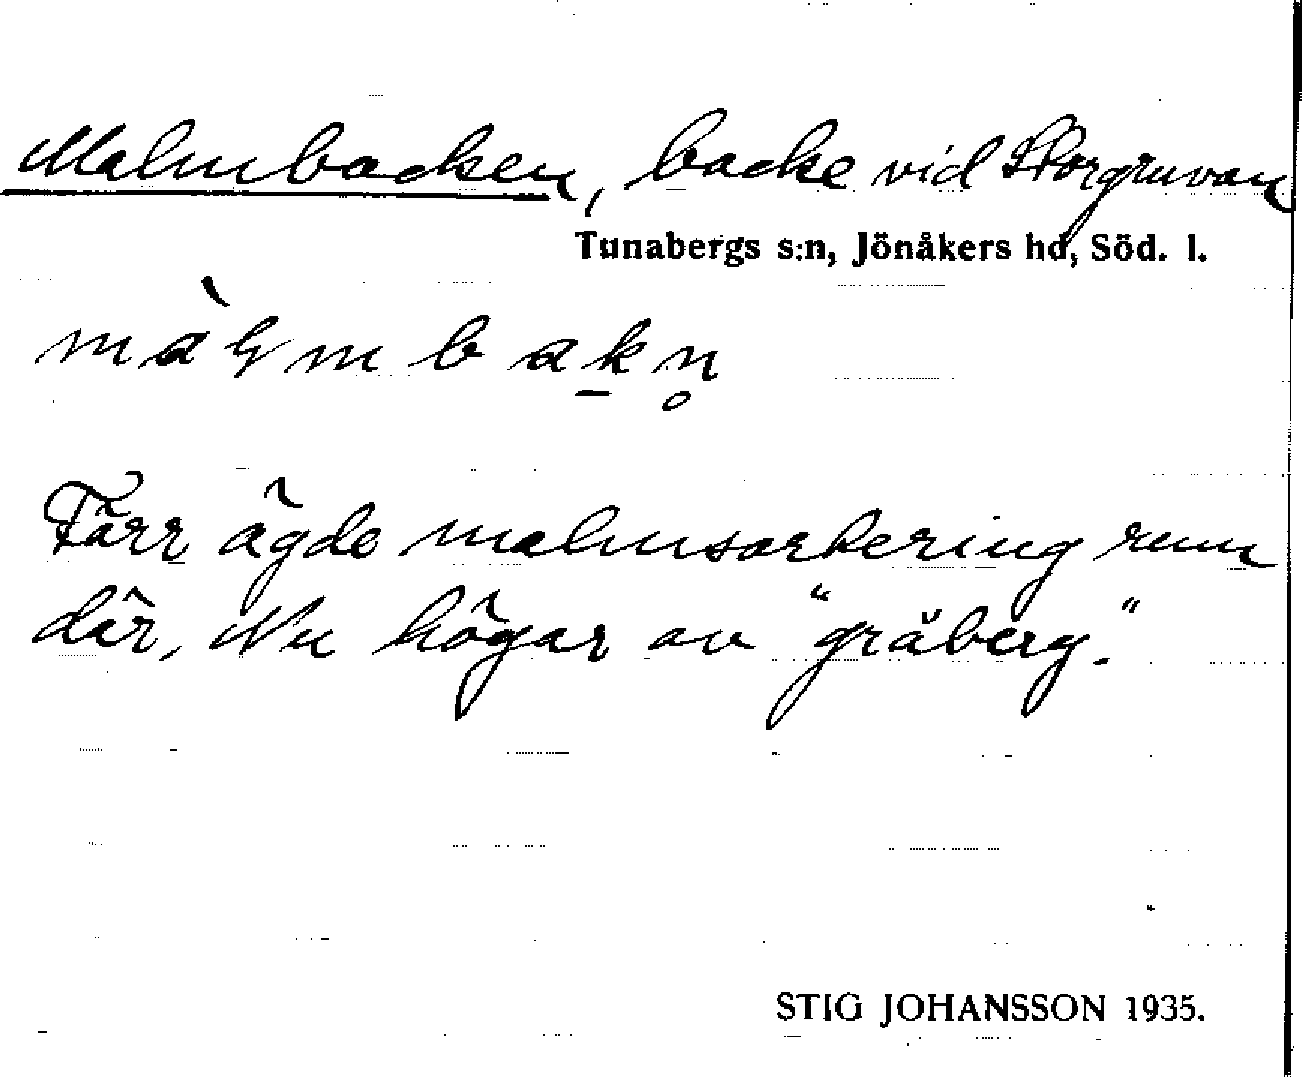 Malmbacken, backe vid Storgruvan
Tunabergs s:n, Jönåkers hd, Söd. l.
màlmbak̲n̥
Förr ägde malmsortering rum
där. Nu högar av "gråberg."
STIG JOHANSSON 1935.